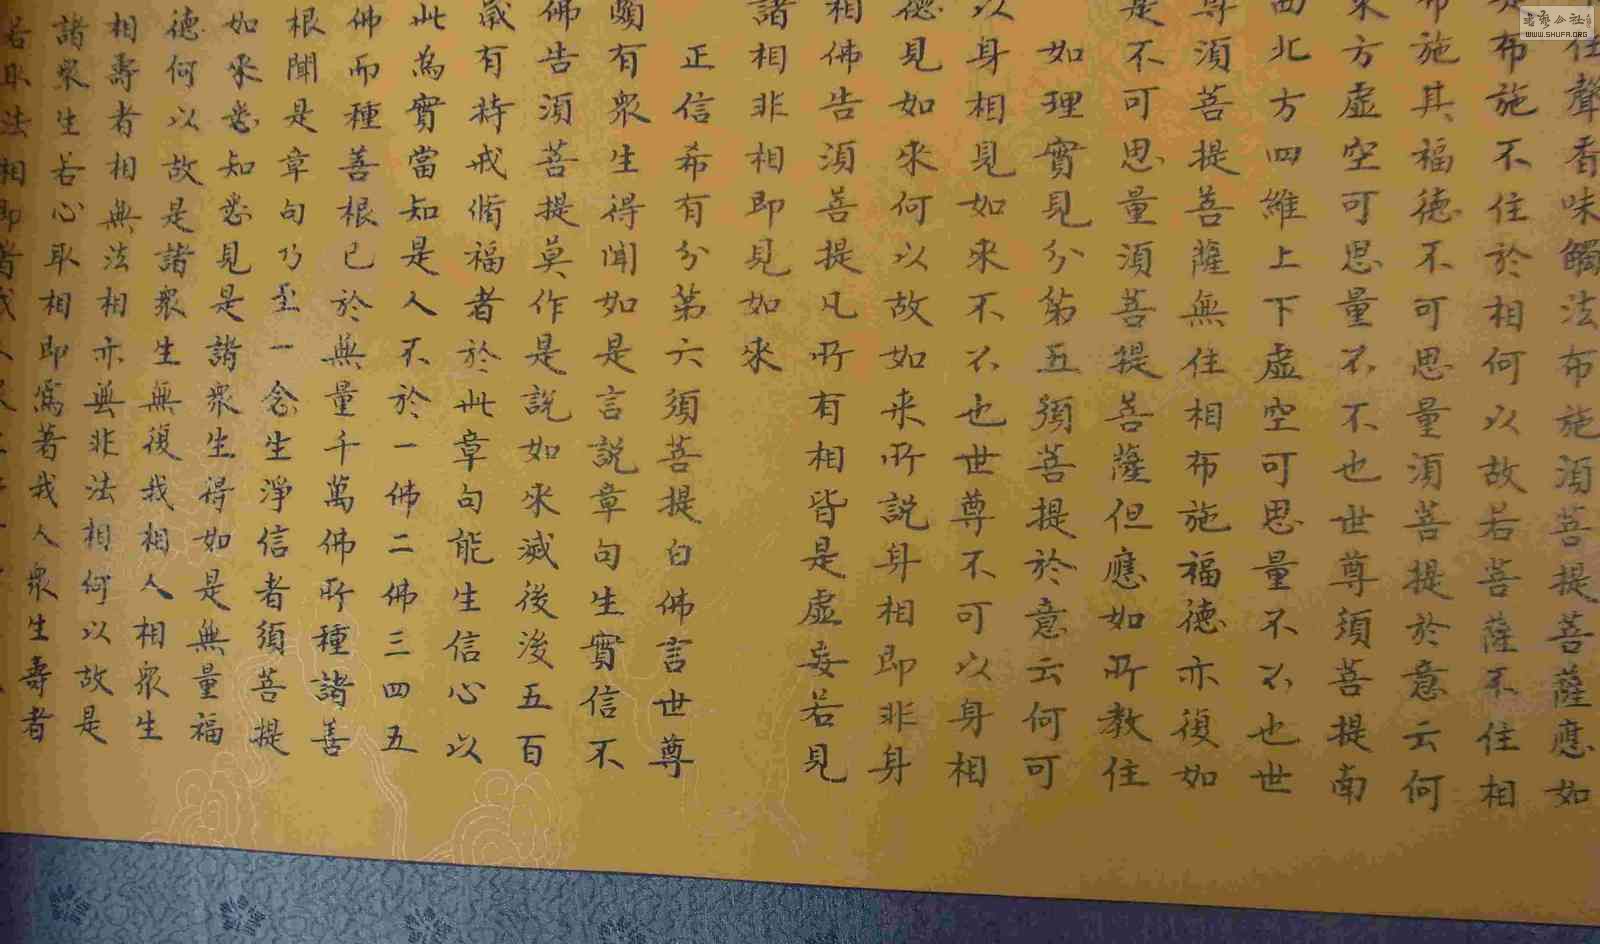 住聲香味觸法布施須菩提菩薩應如
布施不住於相何以故若菩薩不住相
布施其福德不可思量須菩提於意云何
東方虛空可思量不不也世尊須菩提南
西北方四維上下虛空可思量不不也世
尊須菩提菩薩無住相布施福德亦復如
是不可思量須菩提菩薩但應如所教住
如理實見分第五須菩提於意云何可
以身相見如來不不也世尊不可以身相
德見如來何以故如来所説身相即非身
相佛告須菩提凡所有相皆是虛妄若見
諸相非相即見如來
正信希有分第六須菩提白佛言世尊
頗有衆生得聞如是言説章句生實信不
佛告須菩提莫作是説如來滅後後五百
歲有持戒脩福者於此章句能生信心以
此為實當知是人不於一佛二佛三四五
佛而種善根已於無量千萬佛所種諸善
根聞是章句乃至一念生淨信者須菩提
如來悉知悉見是諸衆生得如是無量福
德何以故是諸衆生無復我相人相衆生
相壽者相無法相亦無非法相何以故是
諸衆生若心取相即爲著我人衆生壽者
若取法相即著我人衆
書藝公社
WWW.SHUFA.ORG